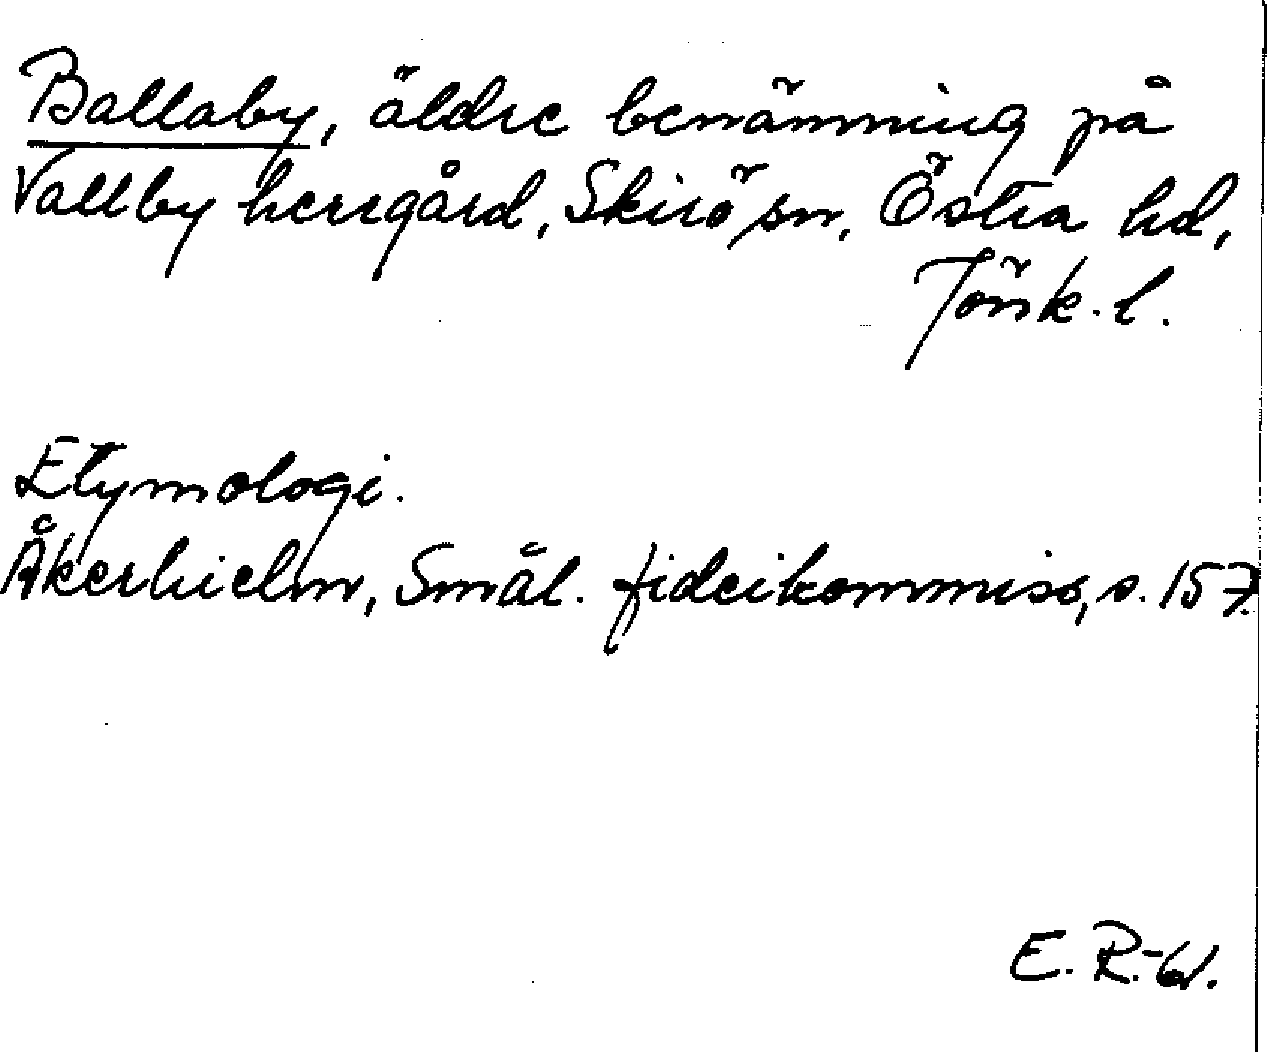 Ballaby, äldre benämning på
Vallby herrgård, Skirö sn, Östra hd,
Jönk. l.
Etymologi.
Åkerhielm, Smål. fideikommiss, s. 157.
E. R.-61.